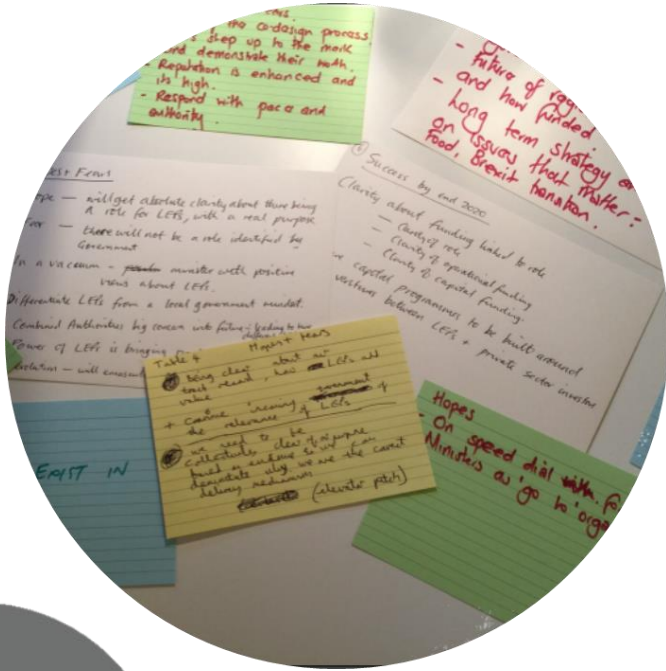 the co-design process.
step up to the mark
and demonstrate their worth.
- Reputation is enhanced and
its high.
- Respond with pace and
authority.
future of
and how funded.
- Long term strategy
on issues that matter:
Food, Brexit transition.
Fears
— will get absolute clarity about there being
a role for LEPs, with a real purpose
— there will not be a role identified by
Government
In a vacuum - minister with positive
views about LEPs.
Differentiate LEPs from a local government mindset.
Combined Authorities big concern into future: leading to
Power of LEPs is bringing
Success by end 2020
Clarity about funding linked to role
— Clarity of role
— Clarity of operational funding
— Clarity of capital funding.
capital programmes to be built around
between LEPs + private sector investors
Table 4 Hopes + fears
Being clear about our
track record, how LEPs add
value
+ government
the relevance of LEPs
we need to be
collectively clear of purpose
based on evidence so we can
demonstrate why we are the correct
delivery mechanism
(elevator pitch)
EXIST IN
Hopes
- On speed dial
Ministers as 'go to'